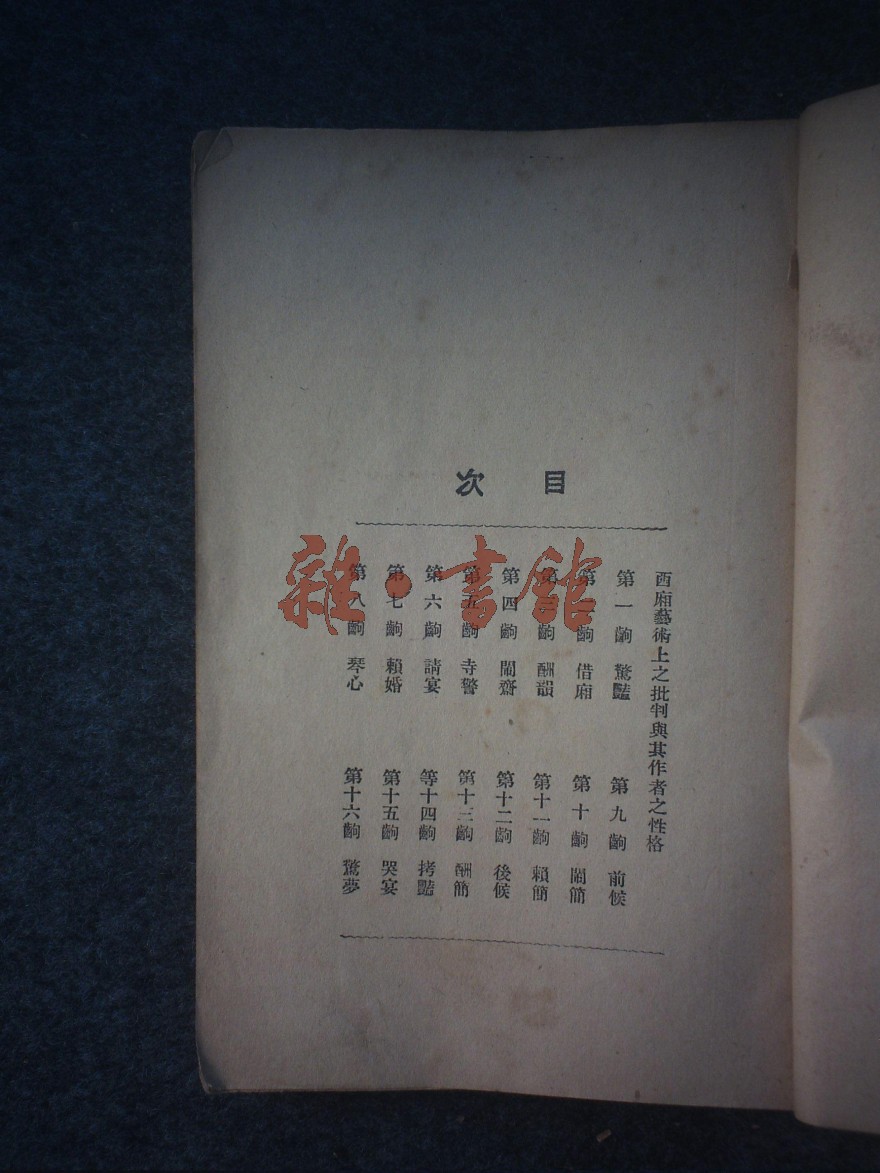 目次
西廂藝術上之批判與其作者之性格
第一齣 驚豔
第二齣 借廂
第三齣 酬韻
第四齣 鬧齋
第五齣 寺警
第六齣 請宴
第七齣 賴婚
第八齣 琴心
第九齣 前候
第十齣 鬧簡
第十一齣 賴簡
第十二齣 後候
第十三齣 酬簡
等十四齣 拷豔
第十五齣 哭宴
第十六齣 驚夢
雜·書館